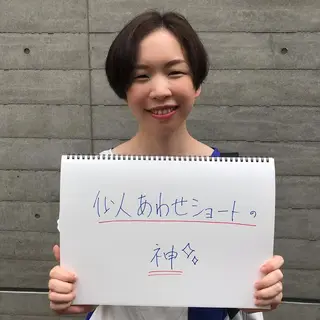 似人あわせショートの
神